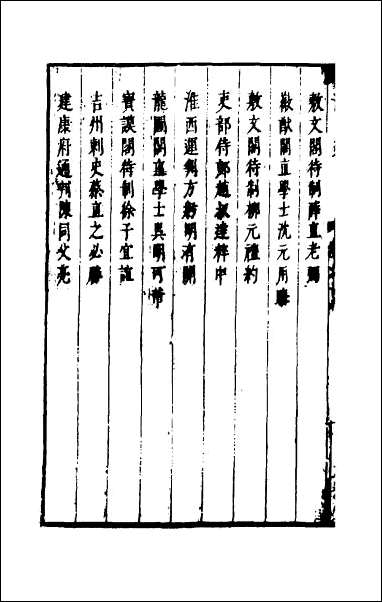 敷文閣待制薛直老弼
徽猷閣直學士沈元用晦
敷文閣待制柳元禮約
吏部侍郎趙叔達粹中
淮西運判方躬明有開
龍圖閣直學士吳明可芾
寶謨閣待制徐子宜誼
吉州刺史蔡直之必勝
建康府通判陳同父亮